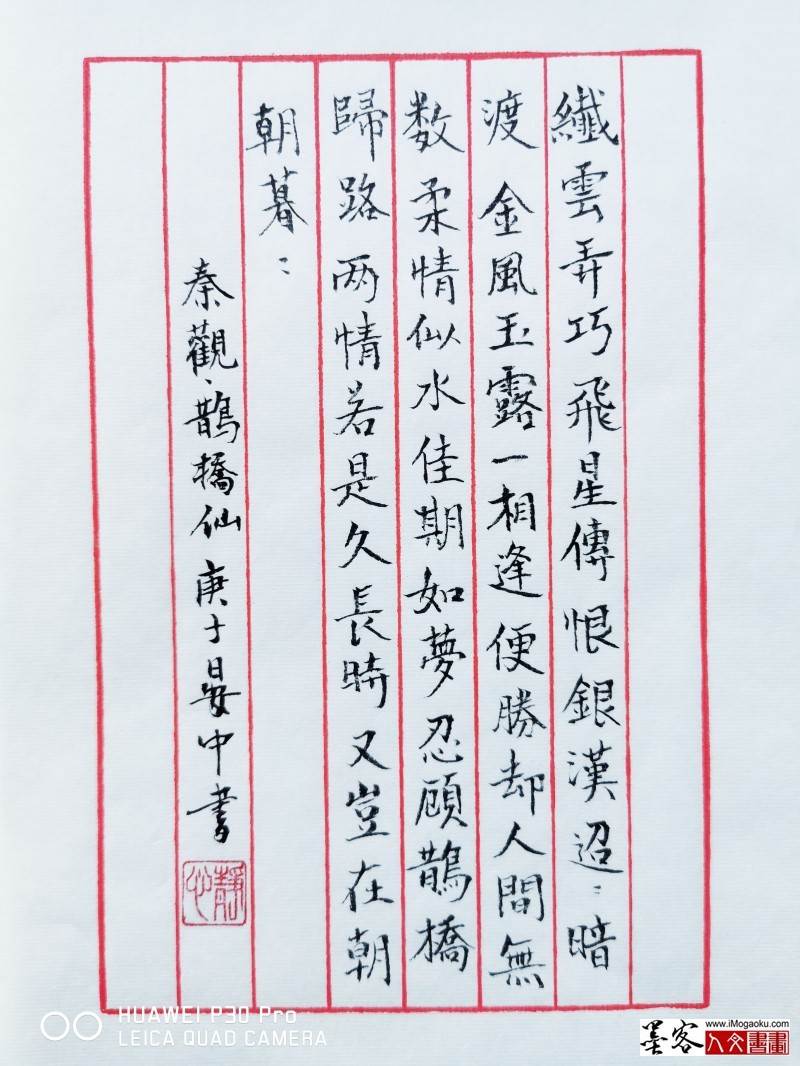 纖雲弄巧飛星傳恨銀漢迢〻暗
渡金風玉露一相逢便勝却人間無
数柔情似水佳期如夢忍顧鵲橋
歸路两情若是久長時又豈在朝
朝暮〻
秦觀、鵲橋仙庚子晏中書
靜心
HUAWEI P30 Pro
LEICA QUAD CAMERA
墨客
www.iMogaoku.com
人文書畫